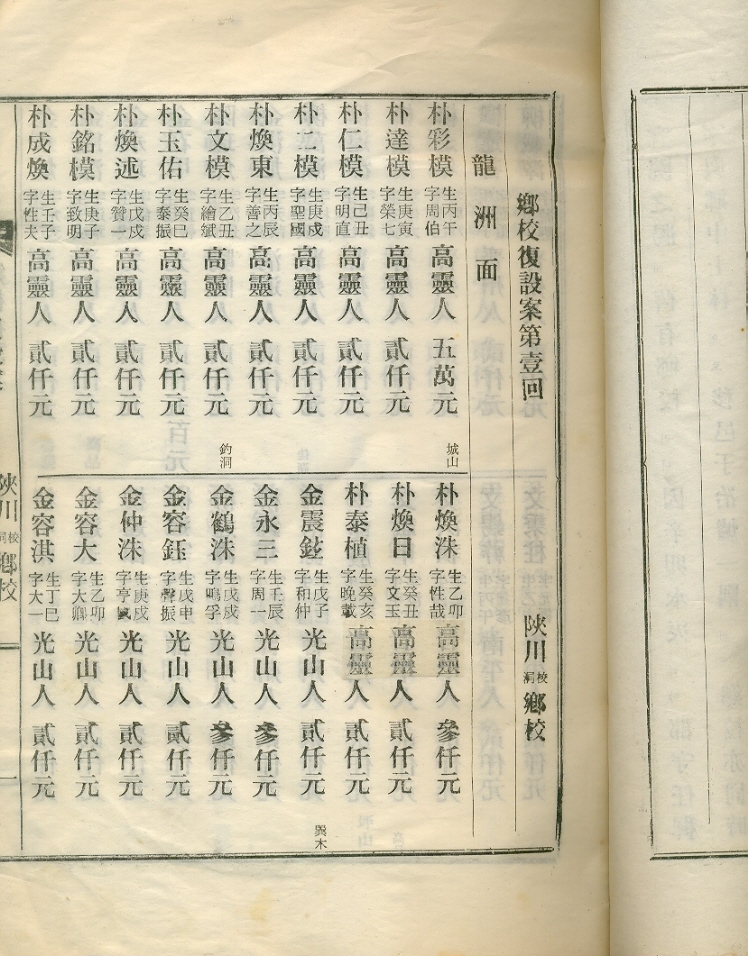 鄉校復設案第壹回 陜川校洞鄉校
龍洲面
朴彩模 生丙午 字周伯 高靈人 五萬元 城山
朴達模 生庚寅 字榮七 高靈人 貳仟元
朴仁模 生己丑 字明直 高靈人 貳仟元
朴二模 生庚戌 字聖國 高靈人 貳仟元
朴煥東 生丙辰 字善之 高靈人 貳仟元
朴文模 生乙丑 字繪斌 高靈人 貳仟元 釣洞
朴玉佑 生癸巳 字泰振 高靈人 貳仟元
朴煥述 生戊戌 字贊一 高靈人 貳仟元
朴銘模 生庚子 字致明 高靈人 貳仟元
朴成煥 生壬子 字性夫 高靈人 貳仟元
朴煥洙 生乙卯 字性哉 高靈人 參仟元
朴煥日 生癸丑 字文玉 高靈人 貳仟元
朴泰植 生癸亥 字晚載 高靈人 貳仟元
金震鉉 生戊子 字和仲 光山人 貳仟元 巽木
金永三 生壬辰 字周一 光山人 參仟元
金鶴洙 生戊戌 字鳴孚 光山人 參仟元
金容鈺 生戊申 字聲振 光山人 貳仟元
金仲洙 生庚戌 字亨 光山人 貳仟元
金容大 生乙卯 字大卿 光山人 貳仟元
金容淇 生丁巳 字大一 光山人 貳仟元
陜川校洞鄉校 一